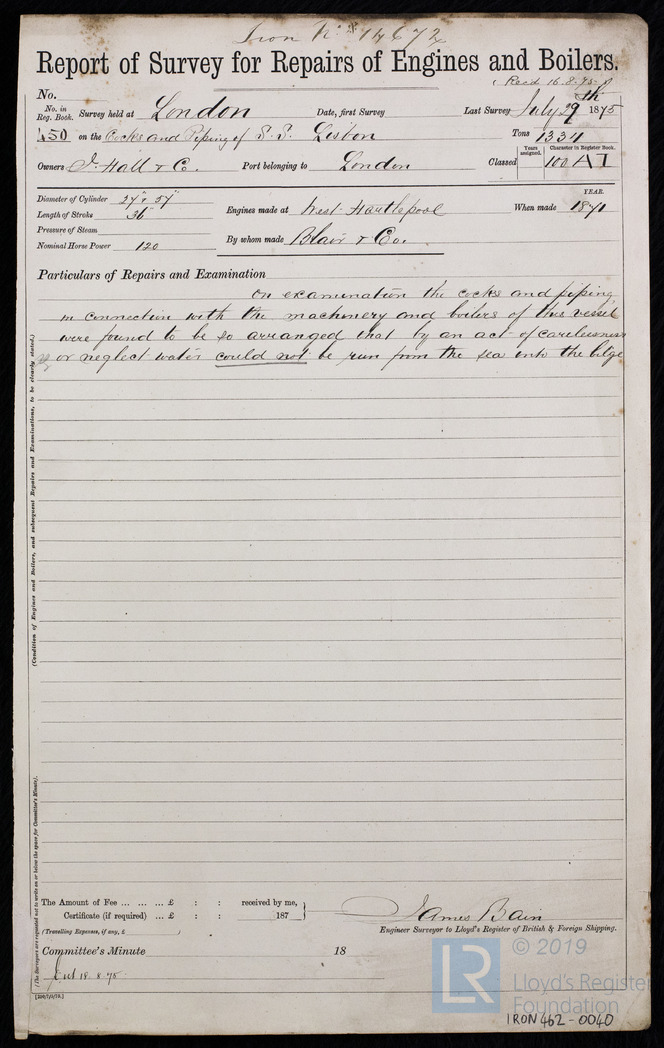 Iron No 14672
Report of Survey for Repairs of Engines and Boilers.
(Recd 16.8.75
No.
No. in Reg. Book. Survey held at London Date, first Survey Last Survey July 29th 1875
450 on the Cocks and Piping of S.S. Lisbon Tons 1334
Owners J. Hall & Co. Port belonging to London Classed Years assigned. Character in Register Book. 100 A1
Diameter of Cylinder 27" & 57"
Length of Stroke 36"
Pressure of Steam
Nominal Horse Power 120
Engines made at West Hartlepool When made YEAR. 1871
By whom made Blair & Co.
Particulars of Repairs and Examination
On examination the cocks and piping
in connection with the machinery and boilers of this vessel
were found to be so arranged that by an act of carelessness
or neglect water could not be run from the sea into the bilge
(Condition of Engines and Boilers, and subsequent Repairs and Examinations, to be clearly stated.)
(The Surveyors are requested not to write on or below the space for Committee's Minute).
The Amount of Fee ... ... ... £ : : received by me,
Certificate (if required) ... £ : : 187
(Travelling Expenses, if any, £ )
James Bain
Engineer Surveyor to Lloyd's Register of British & Foreign Shipping.
Committee's Minute 18
18.8.75
© 2019
LR
Lloyd's Register
Foundation
IRON 462-0040